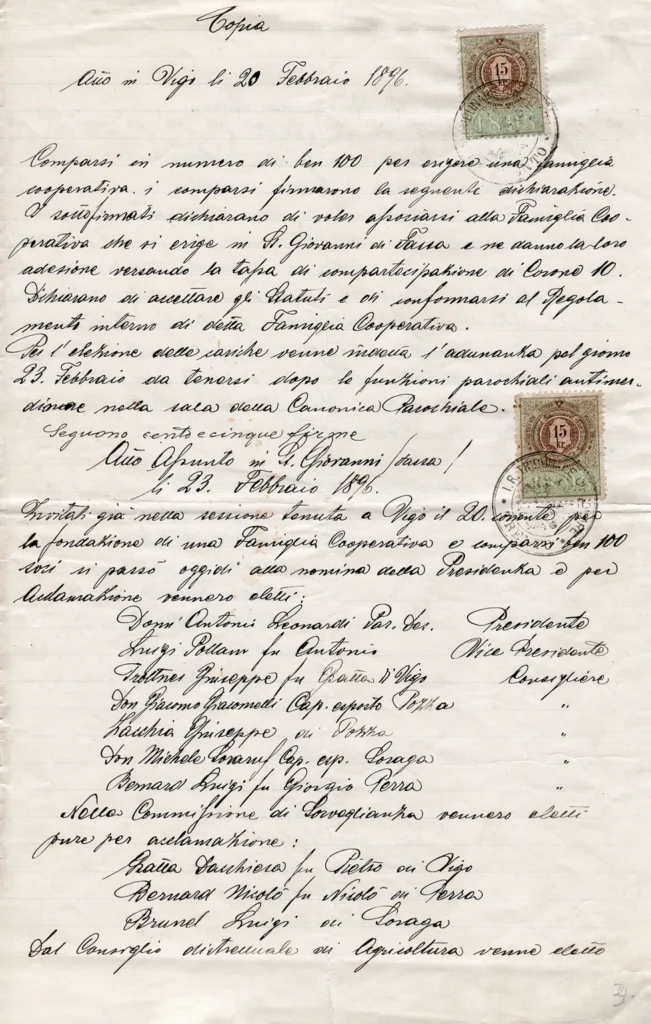 Copia
Atto in Vigo li 20 Febbraio 1896.
15
Kr.
Comparsi in numero di ben 100 per erigere una famiglia
cooperativa. i comparsi firmarono la seguente dichiarazione.
I sottofirmati dichiarano di voler associarsi alla Famiglia Coo-
perativa che si erige in S. Giovanni di Fassa e ne danno la loro
adesione versando la tassa di compartecipazione di Corone 10.
Dichiarano di accettare gli Statuti e di conformarsi al Regola-
mento interno di detta Famiglia Cooperativa.
Per l'elezione delle cariche venne indetta l'adunanza pel giorno
23. Febbraio da tenersi dopo le funzioni parochiali antime-
diane nella sala della Canonica Parochiale.
Seguono centoecinque firme
15
Kr.
Atto Assunto in S. Giovanni /Fassa/
li 23. Febbraio 1896.
Invitati già nella sessione tenuta a Vigo il 20. corrente per
la fondazione di una Famiglia Cooperativa e comparsi ben 100
soci si passò oggidì alla nomina della Presidenza e per
Acclamazione vennero eletti:
Donn Antonio Leonardi Par. Dec. Presidente
Luigi Pollam fu Antonio Vice Presidente
Giuseppe fu Vigo Consigliere
Don Giacomo Giacomelli Cap. esposto Pozza "
Zacchia Giuseppe di Pozza "
Don Michele Cap. esp. Soraga "
Bernard Luigi fu Giorgio Perra "
Nella Commissione di Sorveglianza vennero eletti
pure per acclamazione:
fu Pietro di Vigo
Bernard Nicolò fu Nicolò di Perra
Brunel Luigi di Soraga
Dal Consiglio distrettuale di Agricoltura venne eletto